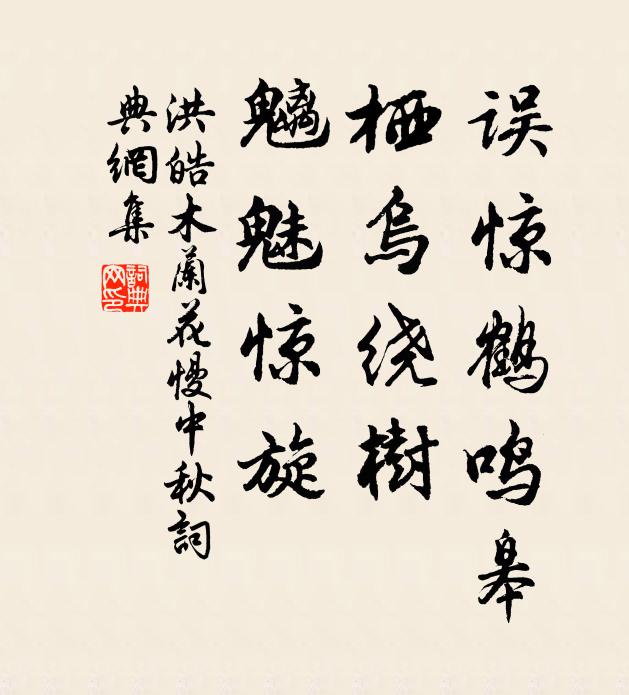 误惊鹤鸣皋
栖乌绕樹
魑魅惊旋
洪皓木蘭花慢中秋詞
典網集
詞典
网印